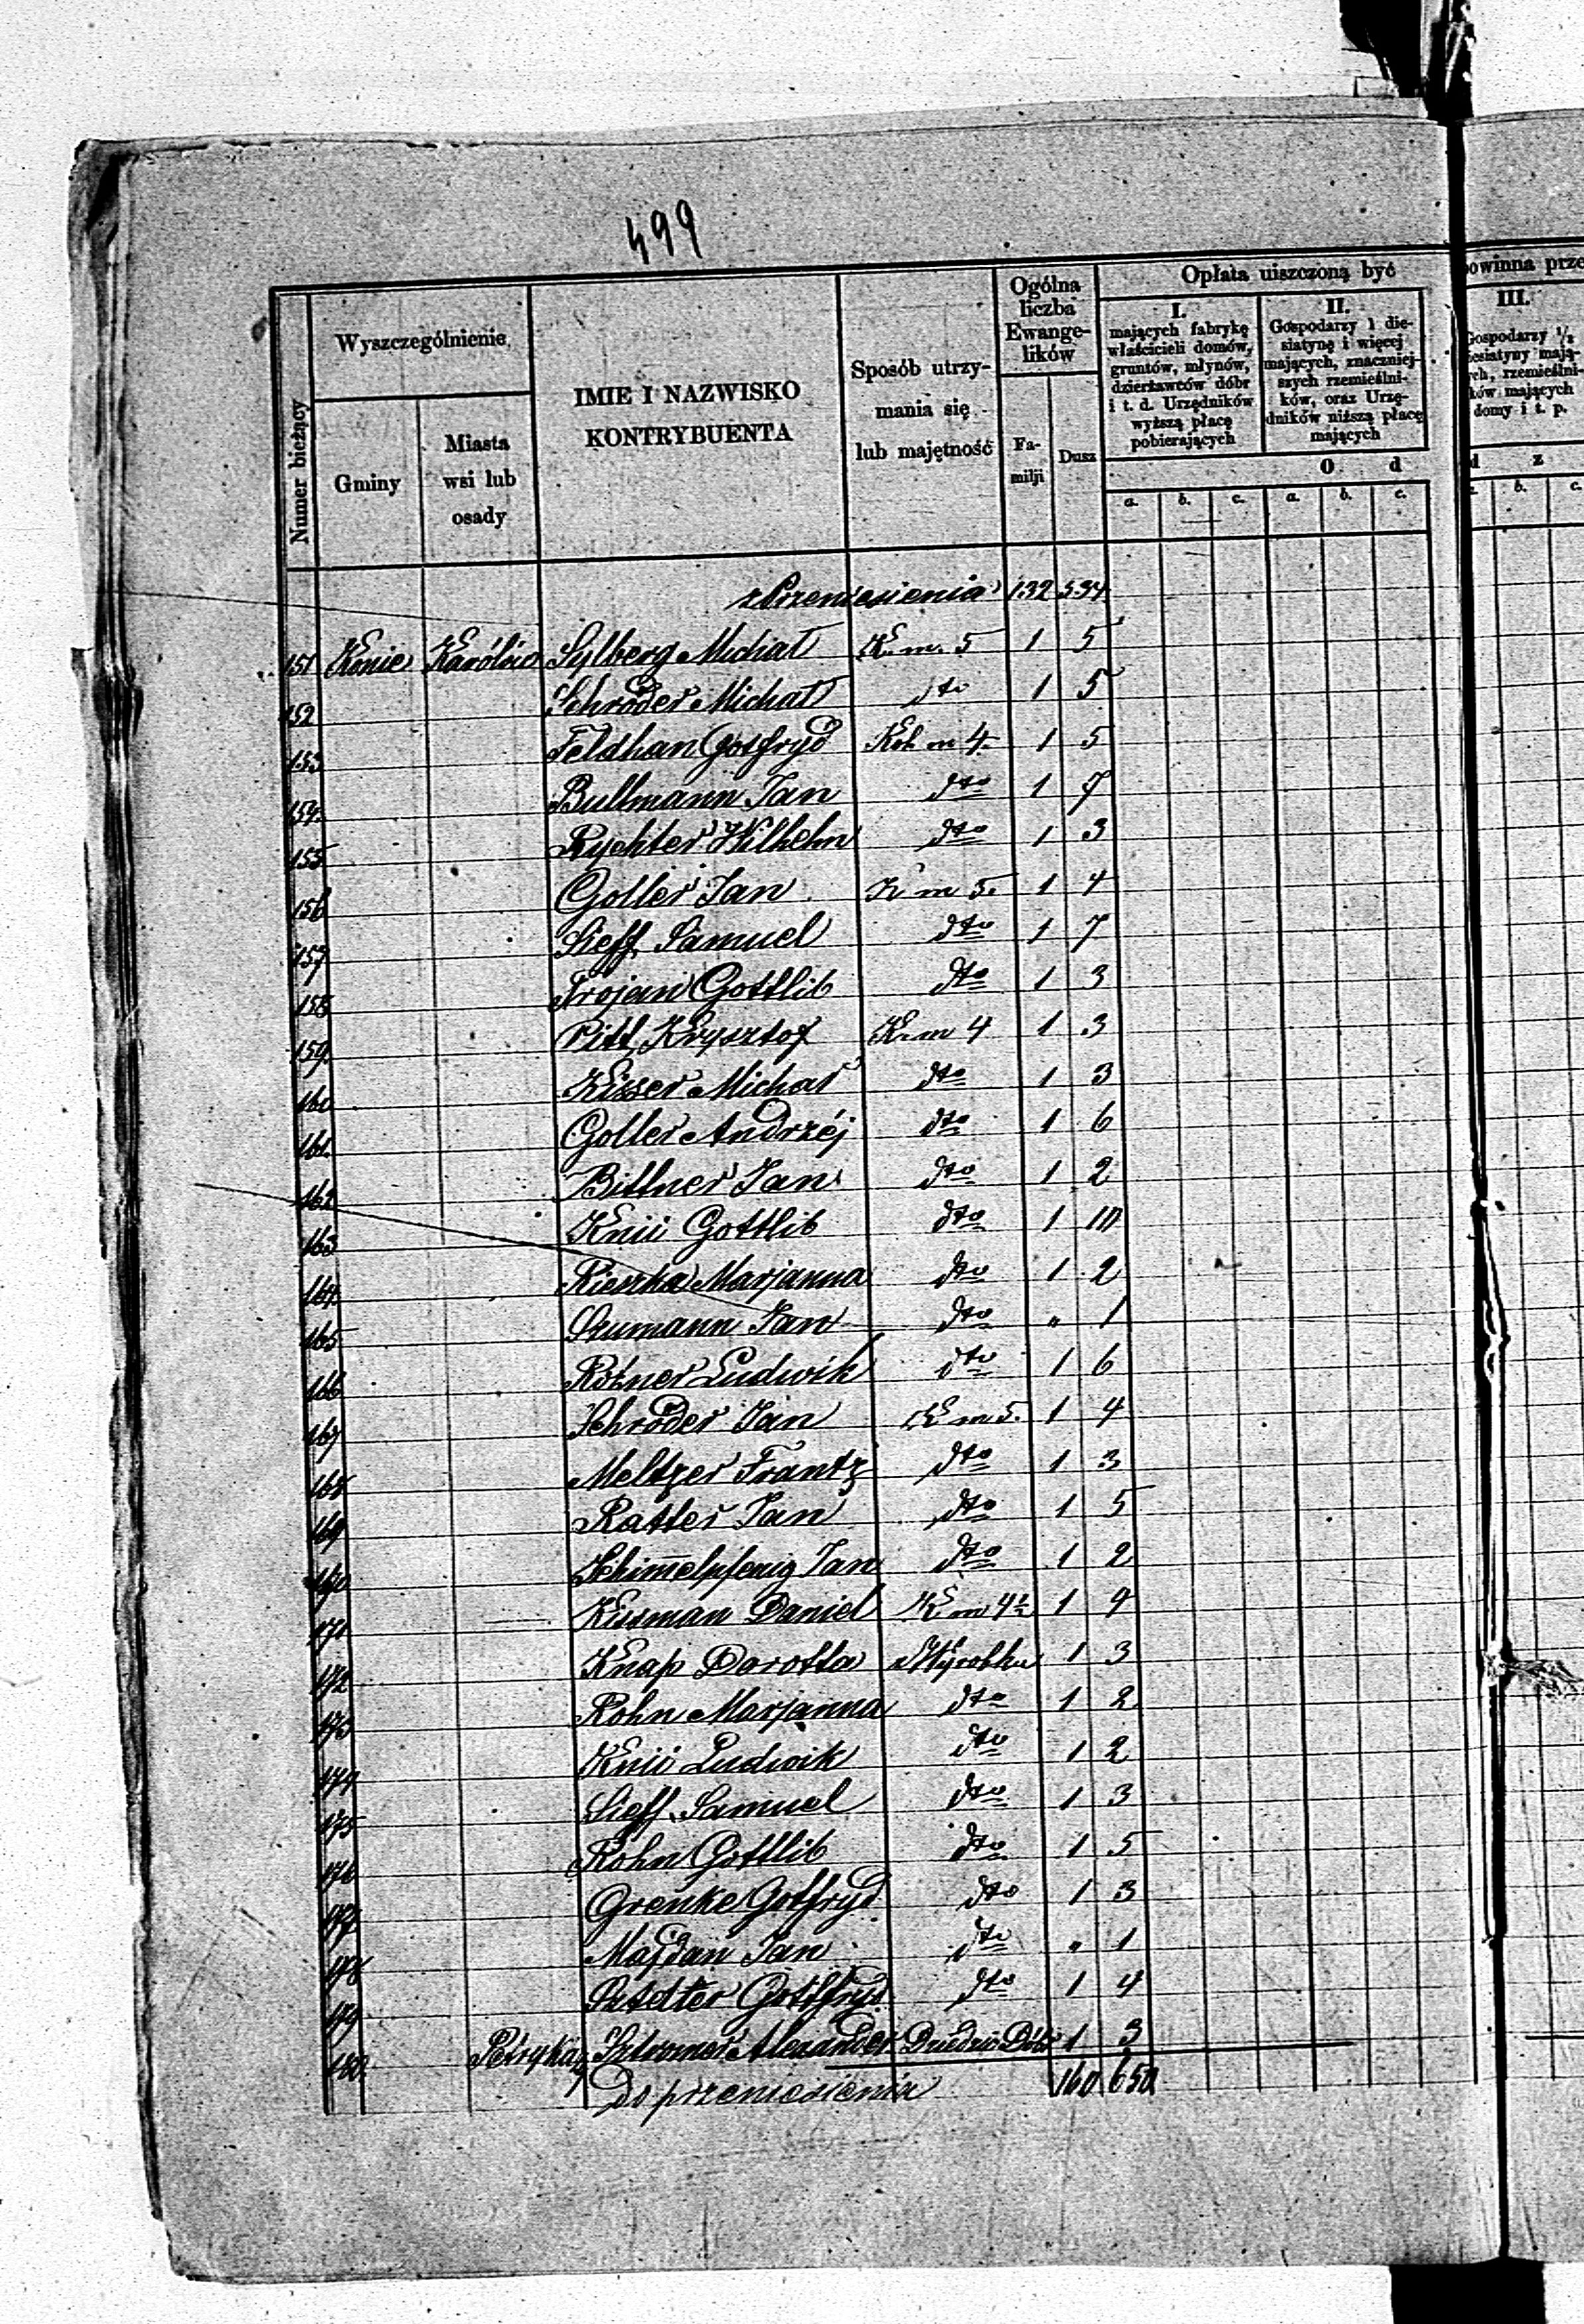 499
Numer bieżący
Wyszczególnienie
Gminy
Miasta
wsi lub
osady
IMIE I NAZWISKO
KONTRYBUENTA
Sposób utrzy-
mania się
lub majętność
Ogólna
liczba
Ewange-
lików
Fa-
milji
Dusz
Opłata uiszczoną być
I.
mających fabrykę
właścicieli domów,
gruntów, młynów,
dzierżawców dóbr
i t. d. Urzędników
wyższą płacę
pobierających
II.
Gospodarzy 1 die-
siatynę i więcej
mających, znaczniej-
szych rzemieślni-
ków, oraz Urzę-
dników niższą płacę
mających
O d
a. b. c. a. b. c.
powinna prze
III.
Gospodarzy ½
esiatyny mają-
ych, rzemieślni-
ków mających
domy i t. p.
d z
b. c.
z Przeniesienia 132 534
151 Konie Karólów Sylberg Michał K. m. 5 1 5
152 Schröder Michał dto 1 5
153 Feldhan Gotfryd m 4. 1 5
154 Bullmann Jan dto 1 7
155 Rychter Wilhelm dto 1 3
156 Goller Jan K m 5. 1 4
157 Sieff Samuel dto 1 7
158 Trojan Gottlib dto 1 3
159 Pitt Krysztof K. m 4 1 3
160 Kisser Michał dto 1 3
161. Goller Andrzéj dto 1 6
162 Bittner Jan dto 1 2
163 Gottlib dto 1 10
164. Marjanna dto 1 2
165 Szumann Jan dto " 1
166 Rohner Ludwik dto 1 6
167 Schröder Jan K m 5. 1 4
168 Meltzer Frantz dto 1 3
169 Ratter Jan dto 1 5
170 Schimelpfenig Jan dto 1 2
171 Kissman Daniel K m 4½ 1 9
172 Knap Dorotta Wyrobku 1 3
173 Rohn Marjanna dto 1 2
174 Ludwik dto 1 2
175 Sieff Samuel dto 1 3
176 Rohn Gottlib dto 1 5
177 Grenke Gotfryd dto 1 3
178 Majdan Jan dto " 1
179 Gottfryd dto 1 4
180. Petrykozy Sztromer Alexander Dziedzic Dóbr 1 3
Do przeniesienia 160 650